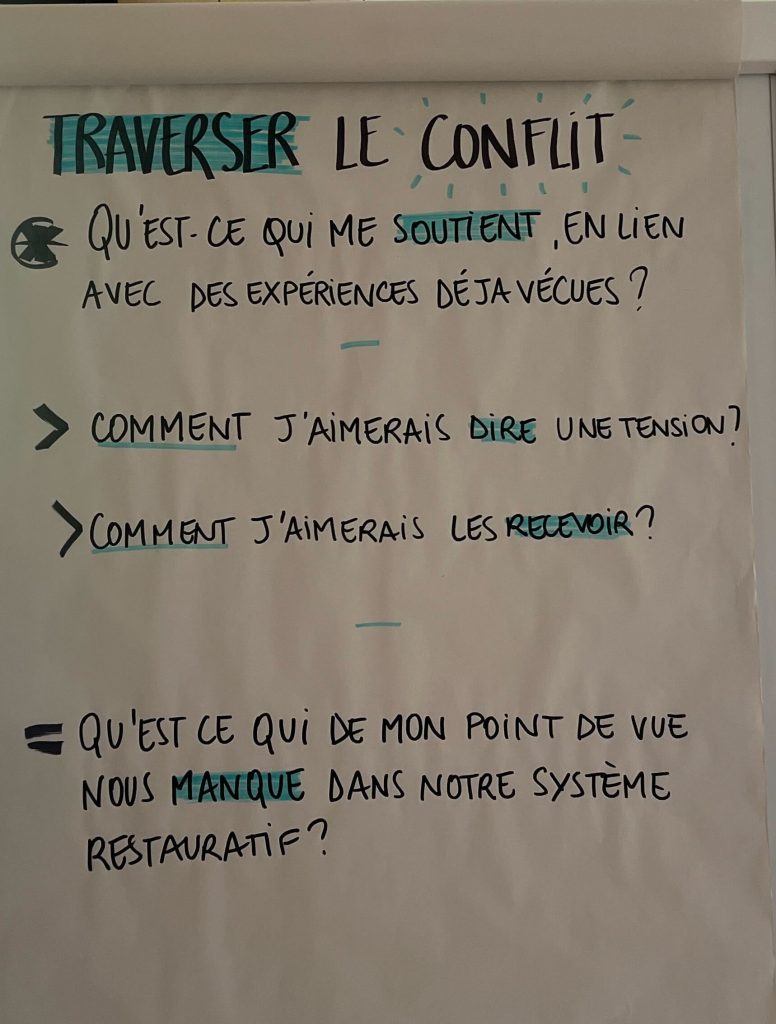 TRAVERSER LE CONFLIT
QU'EST-CE QUI ME SOUTIENT, EN LIEN
AVEC DES EXPÉRIENCES DÉJA VÉCUES ?
> COMMENT J'AIMERAIS DIRE UNE TENSION ?
> COMMENT J'AIMERAIS LES RECEVOIR ?
= QU'EST CE QUI DE MON POINT DE VUE
NOUS MANQUE DANS NOTRE SYSTÈME
RESTAURATIF ?